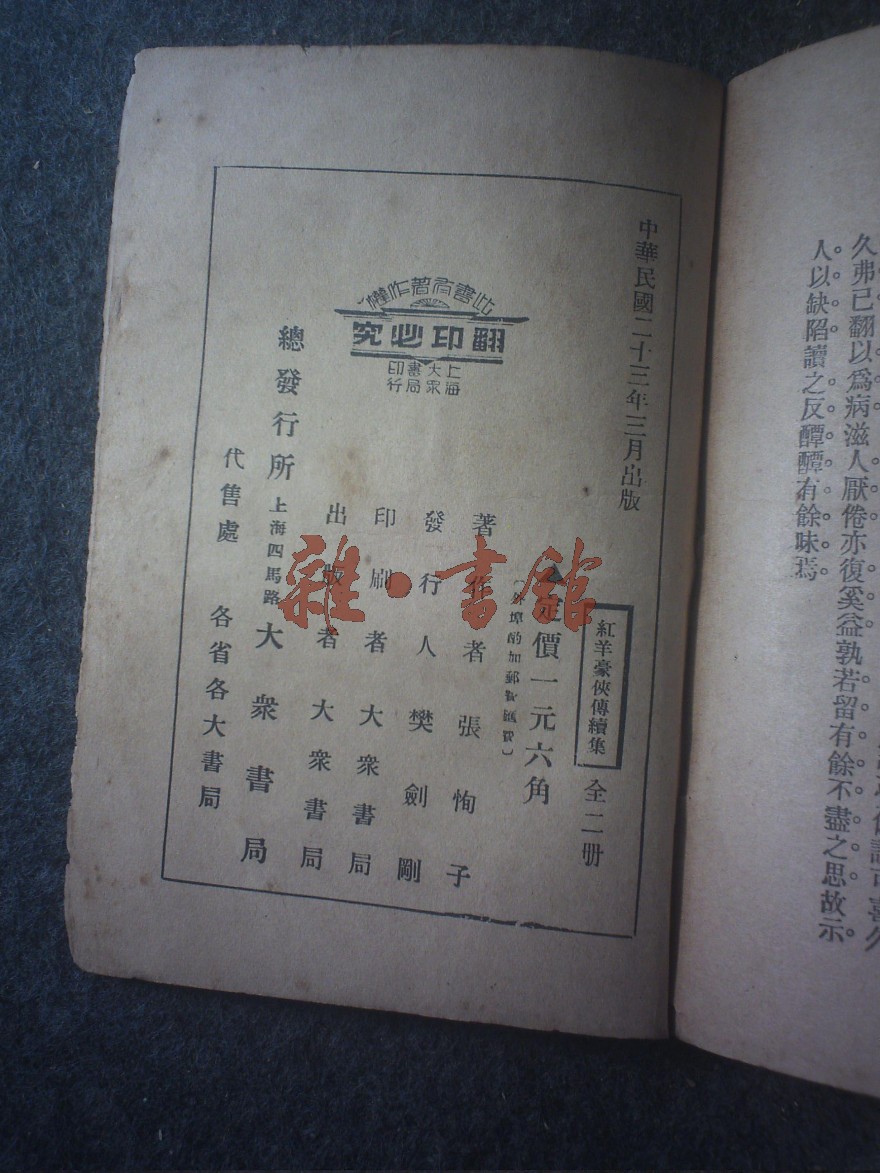 久弗已翻以爲病滋人厭倦亦復奚益孰若留有餘不盡之思故示
人以缺陷讀之反醰醰有餘味焉。
中華民國二十三年三月出版
紅羊豪俠傳續集 全二册
定價一元六角
〔外埠酌加郵費匯費〕
著作者 張恂子
發行人 樊劍剛
印刷者 大衆書局
出版者 大衆書局
總發行所 上海四馬路 大衆書局
代售處 各省各大書局
此書有著作權
翻印必究
上海
大衆
書局
印行
雜·書館